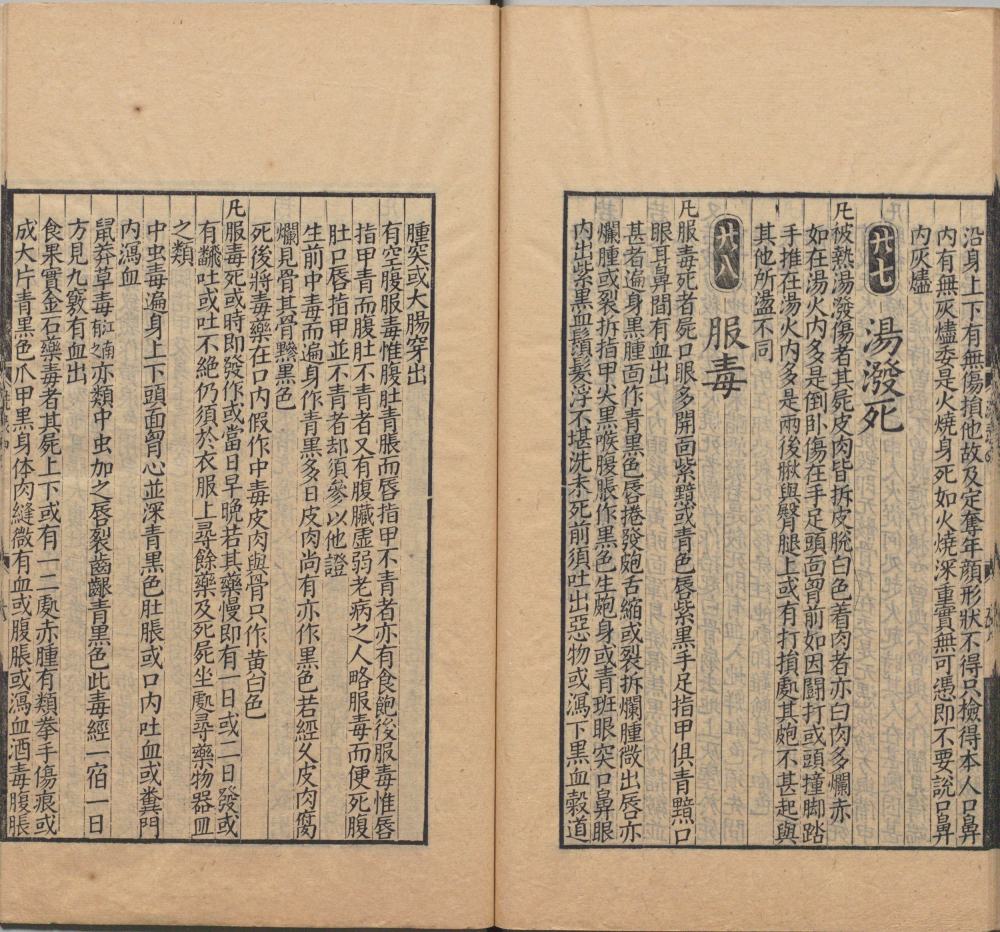 沿身上下有無傷損他故及定奪年顔形狀不得只檢得本人口鼻
内有無灰燼委是火燒身死如火燒深重實無可憑即不要說口鼻
内灰燼
廿七　湯潑死
凡被熱湯潑傷者其屍皮肉皆拆皮脫白色着肉者亦白肉多爛赤
如在湯火内多是倒卧傷在手足頭面胷前如因鬬打或頭撞脚踏
手推在湯火内多是兩後䐐與臀腿上或有打損處其皰不甚起與
其他所盪不同
廿八　服毒
凡服毒死者屍口眼多開面紫黯或青色唇紫黑手足指甲俱青黯口
眼耳鼻間有血出
甚者遍身黑腫面作青黑色唇捲發皰舌縮或裂拆爛腫微出唇亦
爛腫或裂拆指甲尖黑喉腹脹作黑色生皰身或青班眼突口鼻眼
内出紫黑血鬚髮浮不堪洗未死前須吐出惡物或瀉下黑血穀道
腫突或大腸穿出
有空腹服毒惟腹肚青脹而唇指甲不青者亦有食飽後服毒惟唇
指甲青而腹肚不青者又有腹臟虚弱老病之人略服毒而便死腹
肚口唇指甲並不青者却須參以他證
生前中毒而遍身作青黑多日皮肉尚有亦作黑色若經久皮肉腐
爛見骨其骨黲黑色
死後將毒藥在口内假作中毒皮肉與骨只作黄白色
凡服毒死或時即發作或當日早晚若其藥慢即有一日或二日發或
有翻吐或吐不絶仍須於衣服上尋餘藥及死屍坐處尋藥物器皿
之類
中虫毒遍身上下頭面胷心並深青黑色肚脹或口内吐血或糞門
内瀉血
鼠莽草毒江南有之亦類中虫加之唇裂齒齦青黑色此毒經一宿一日
方見九竅有血出
食果實金石藥毒者其屍上下或有一二處赤腫有類拳手傷痕或
成大片青黑色爪甲黑身体肉縫微有血或腹脹或瀉血酒毒腹脹